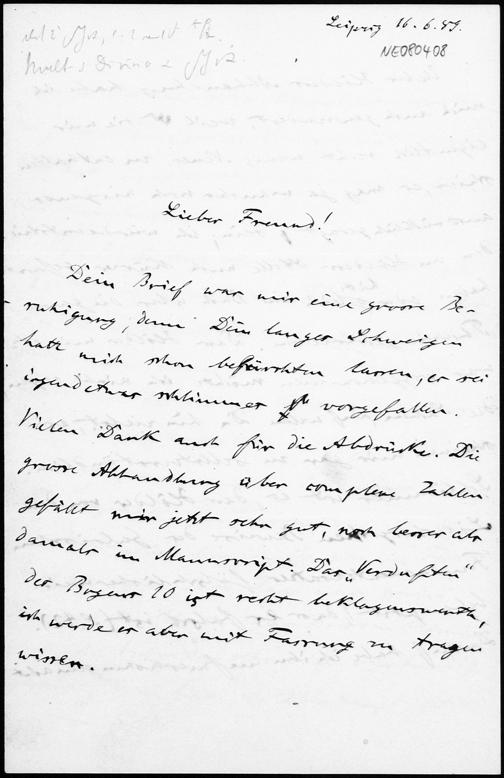 Leipzig 16.6.49.
NE080408
Lieber Freund!
Dein Brief war mir eine grosse Be-
ruhigung, denn Dein langes Schweigen
hatte mich schon befürchten lassen, es sei
irgendetwas schlimmes vorgefallen.
Vielen Dank auch für die Abdrücke. Die
grosse Abhandlung über complexe Zahlen
gefällt mir jetzt sehr gut, noch besser als
damals im Manuscript. Das „Verduften“
des Bogens 10 ist recht beklagenswerth,
ich werde es aber mit Fassung zu tragen
wissen.